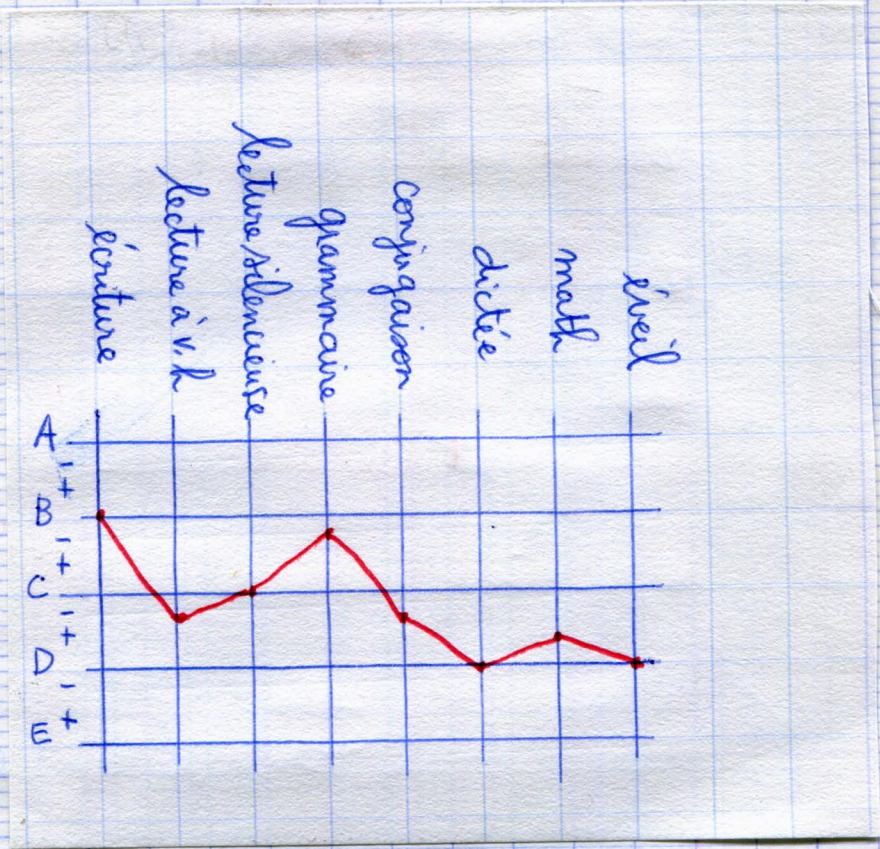 écriture
lecture à v.h
lecture silencieuse
grammaire
conjugaison
dictée
math
éveil
A
-
+
B
-
+
C
-
+
D
-
+
E